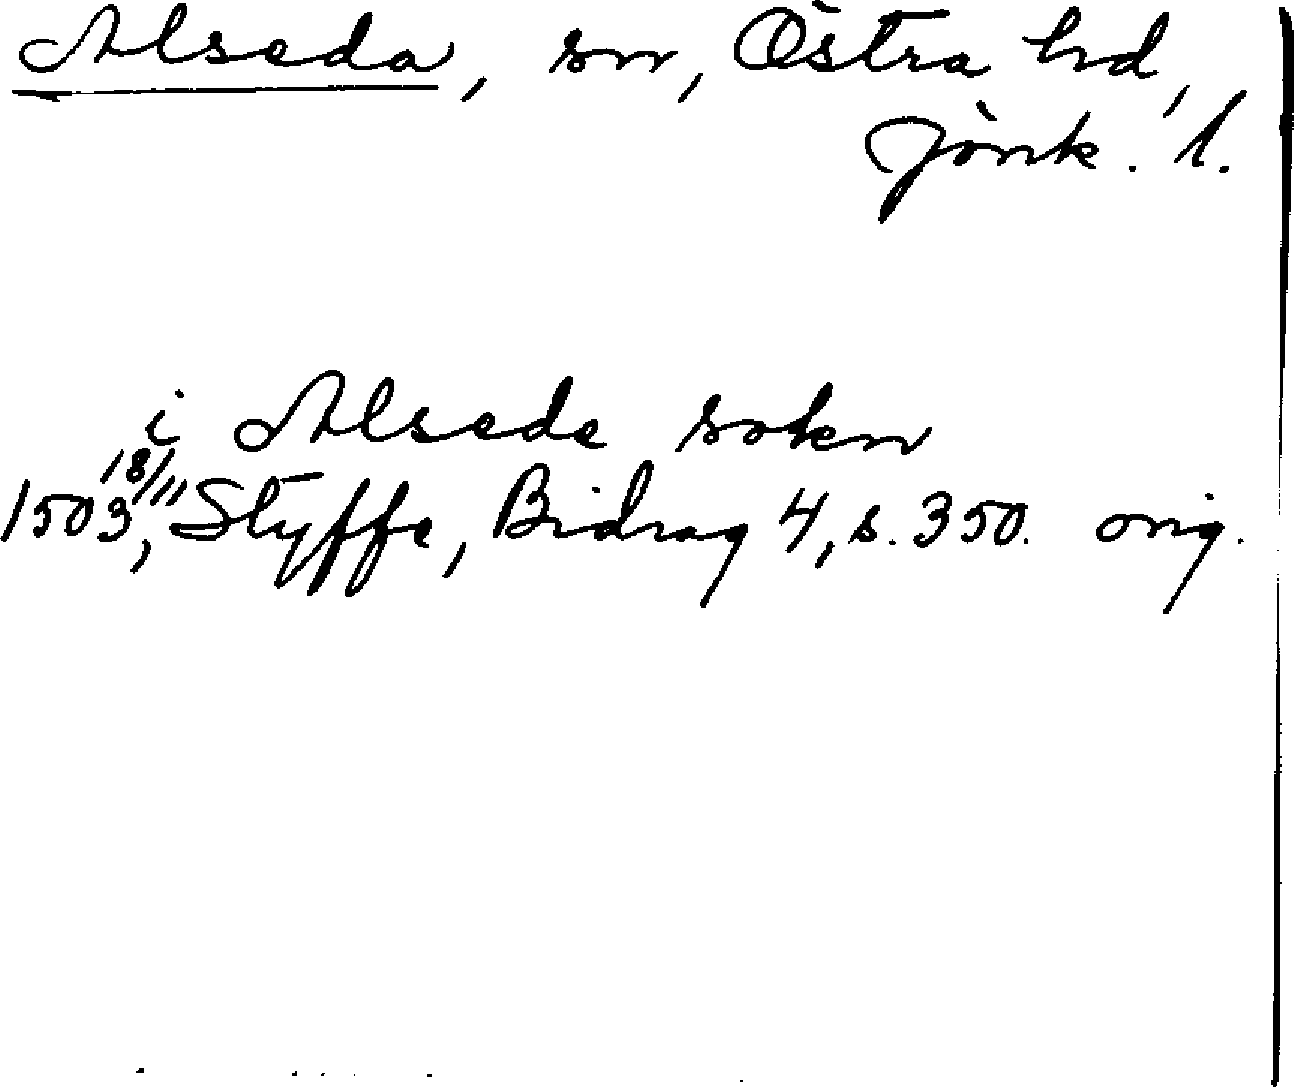 Alseda, sn, Östra hd,
Jönk. l.
i Alsede sokn
1503 18/11, Styffe, Bidrag 4, s. 350. orig.